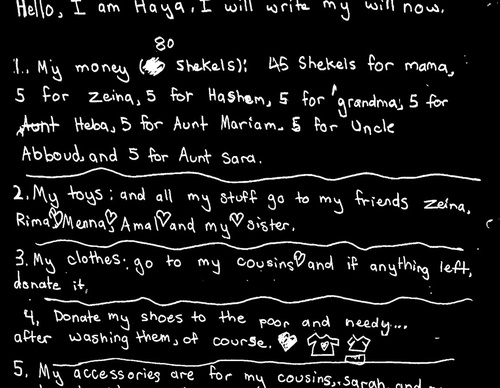 Hello, I am Haya, I will write my will now.
80
1., My money ( Shekels): 45 Shekels for mama,
5 for Zeina, 5 for Hashem, 5 for grandma, 5 for
Aunt Heba, 5 for Aunt Mariam. 5 for Uncle
Abboud, and 5 for Aunt Sara.
2. My toys: and all my stuff go to my friends Zeina,
Rima♡, Menna♡, Amal♡ and my♡ sister.
3. My clothes: go to my cousins♡ and if anything left,
donate it,
4, Donate my shoes to the poor and needy...
after washing them, of course.
5. My accessories are for my cousins, sarah and